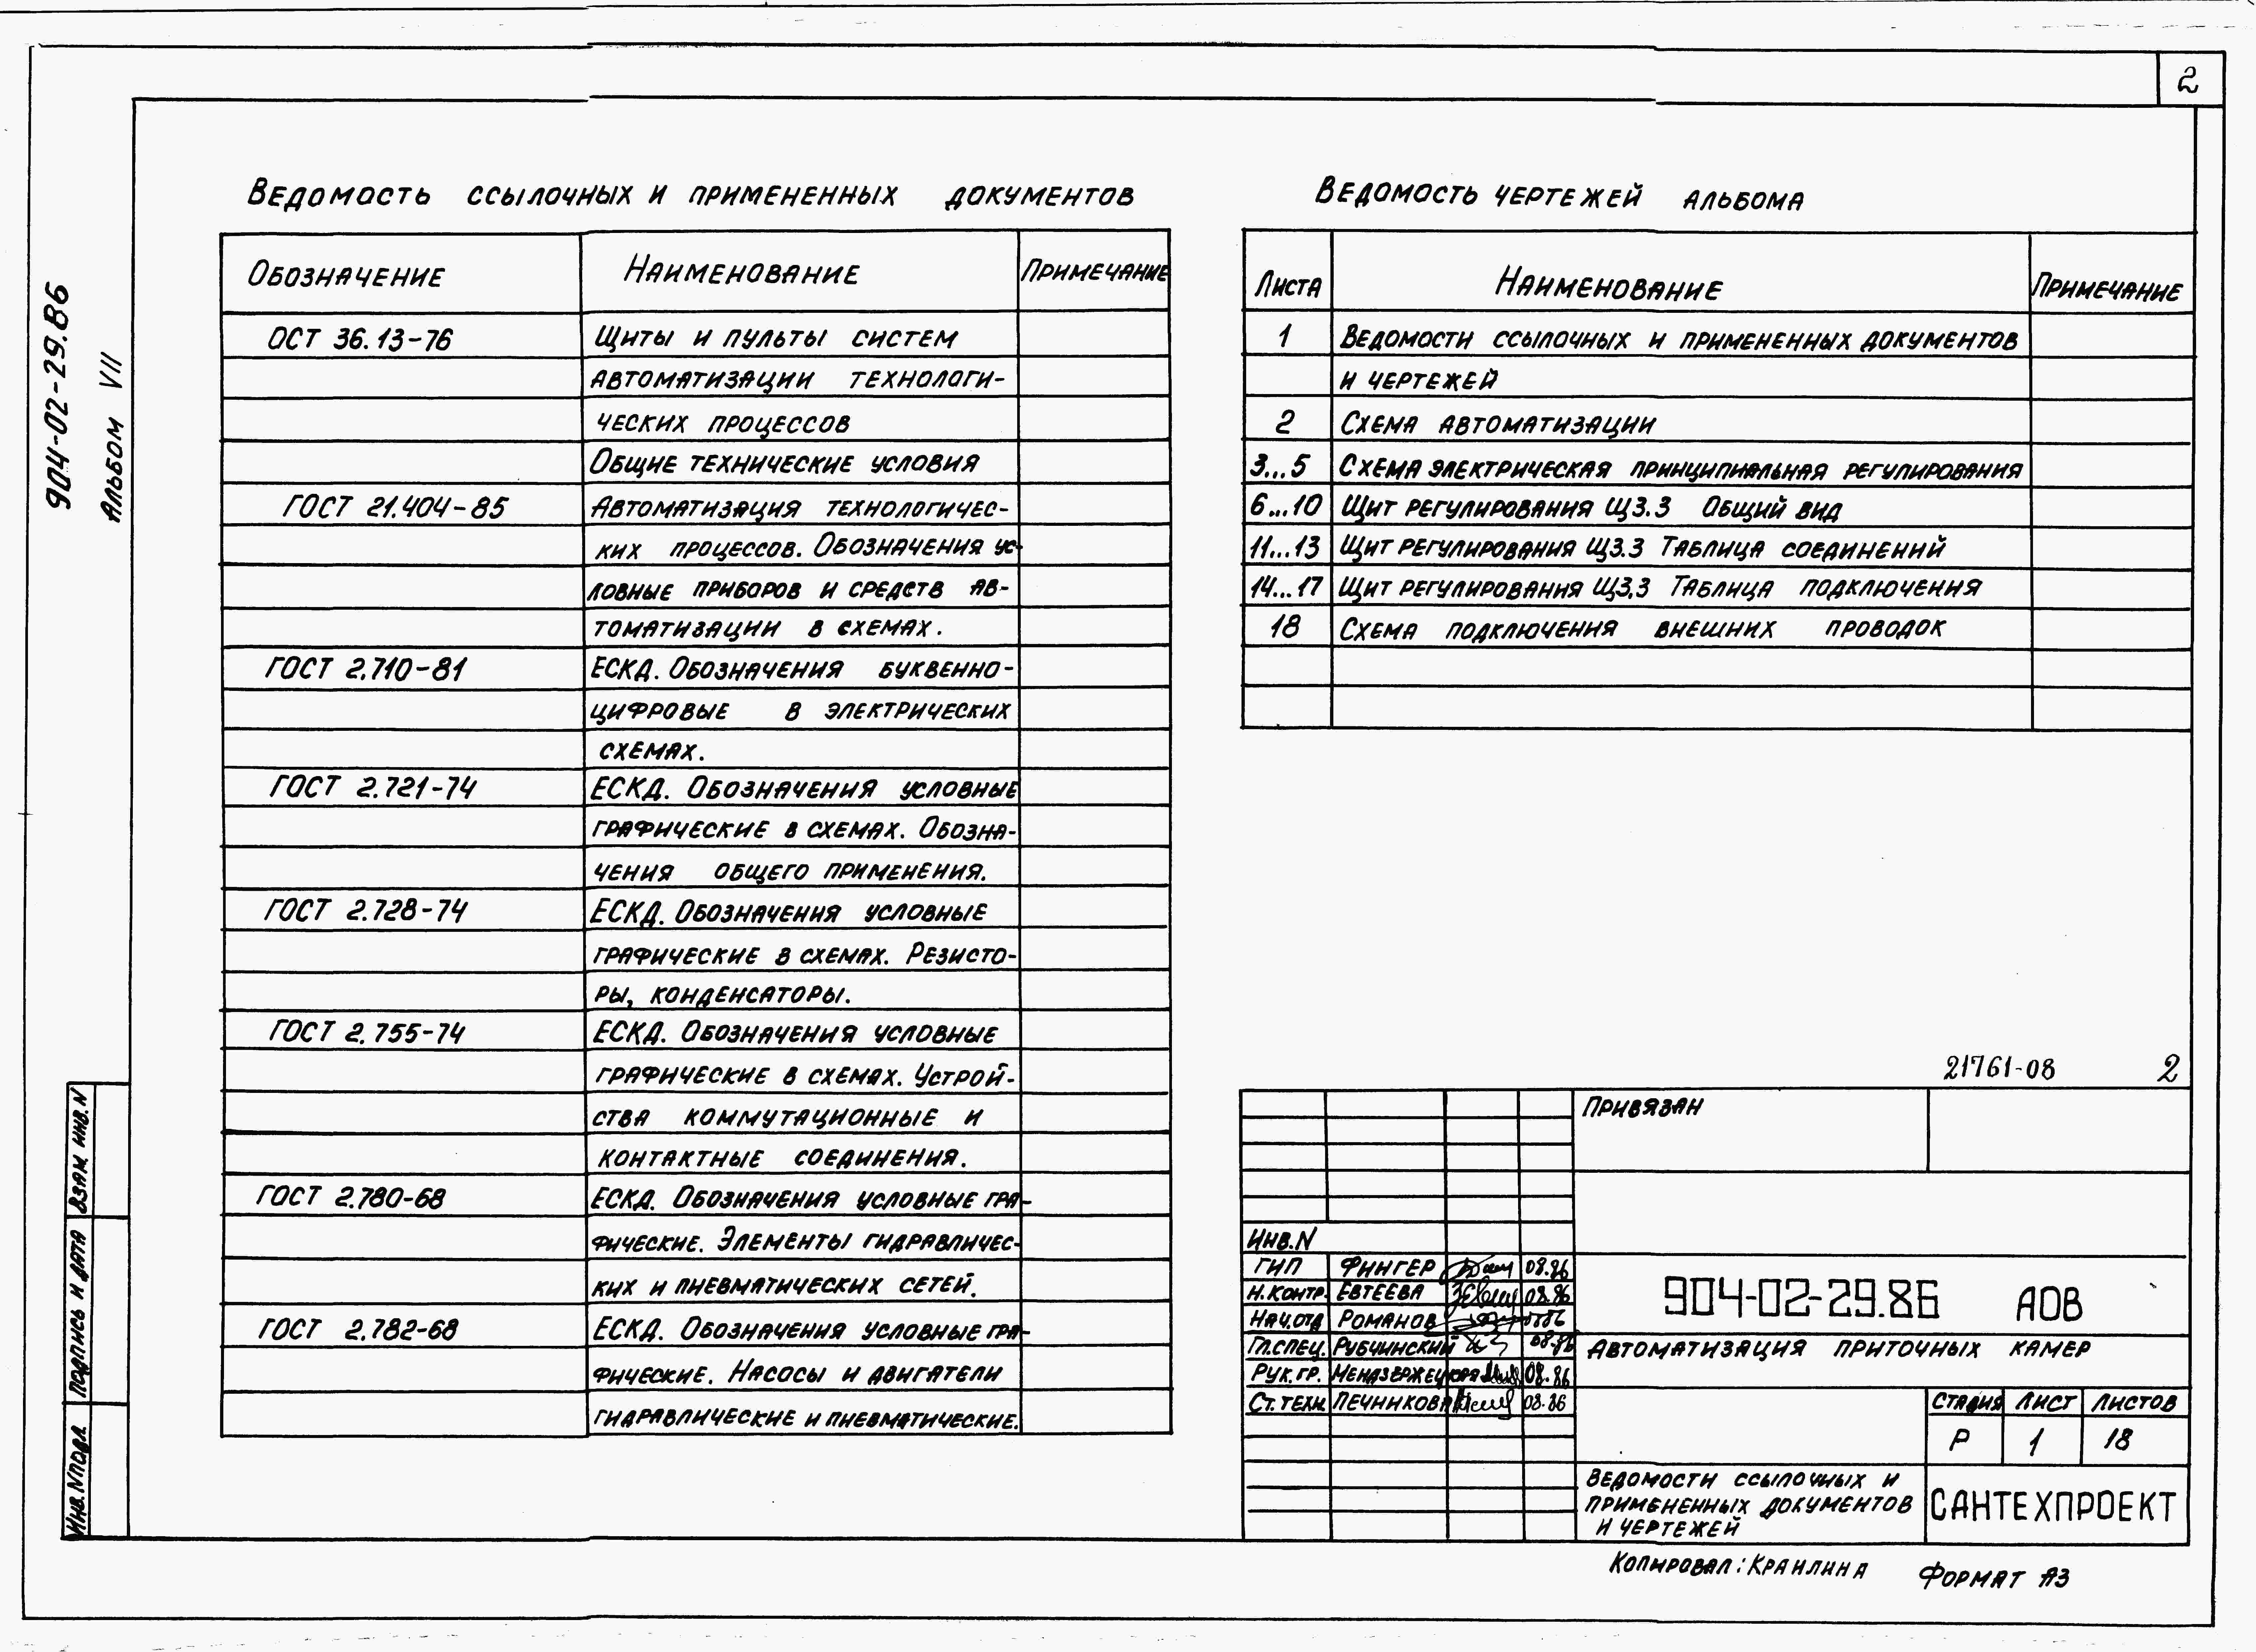 2
904-02-29.86
Альбом VII
Ведомость ссылочных и примененных документов
Обозначение Наименование Примечание
ОСТ 36.13-76 Щиты и пульты систем
автоматизации технологи-
ческих процессов
Общие технические условия
ГОСТ 21.404-85 Автоматизация технологичес-
ких процессов. Обозначения ус-
ловные приборов и средств ав-
томатизации в схемах.
ГОСТ 2.710-81 ЕСКД. Обозначения буквенно-
цифровые в электрических
схемах.
ГОСТ 2.721-74 ЕСКД. Обозначения условные
графические в схемах. Обозна-
чения общего применения.
ГОСТ 2.728-74 ЕСКД. Обозначения условные
графические в схемах. Резисто-
ры, конденсаторы.
ГОСТ 2.755-74 ЕСКД. Обозначения условные
графические в схемах. Устрой-
ства коммутационные и
контактные соединения.
ГОСТ 2.780-68 ЕСКД. Обозначения условные гра-
фические. Элементы гидравличес-
ких и пневматических сетей.
ГОСТ 2.782-68 ЕСКД. Обозначения условные гра-
фические. Насосы и двигатели
гидравлические и пневматические.
Ведомость чертежей альбома
Листа Наименование Примечание
1 Ведомости ссылочных и примененных документов
и чертежей
2 Схема автоматизации
3...5 Схема электрическая принципиальная регулирования
6...10 Щит регулирования Щ3.3 Общий вид
11...13 Щит регулирования Щ3.3 Таблица соединений
14...17 Щит регулирования Щ3.3 Таблица подключения
18 Схема подключения внешних проводок
21761-08 2
Привязан
Инв. N
ГИП Фингер 08.86
Н.контр. Евтеева 08.86
Нач.отд Романов
Гл.спец. Рубчинский 08.86
Рук.гр. 08.86
Ст.техн. Печникова 08.86
904-02-29.86 АОВ
Автоматизация приточных камер
Стадия Лист Листов
Р 1 18
Ведомости ссылочных и
примененных документов
и чертежей
САНТЕХПРОЕКТ
Копировал: Краилина Формат А3
Взам. инв. N
Подпись и дата
Инв. N подл.